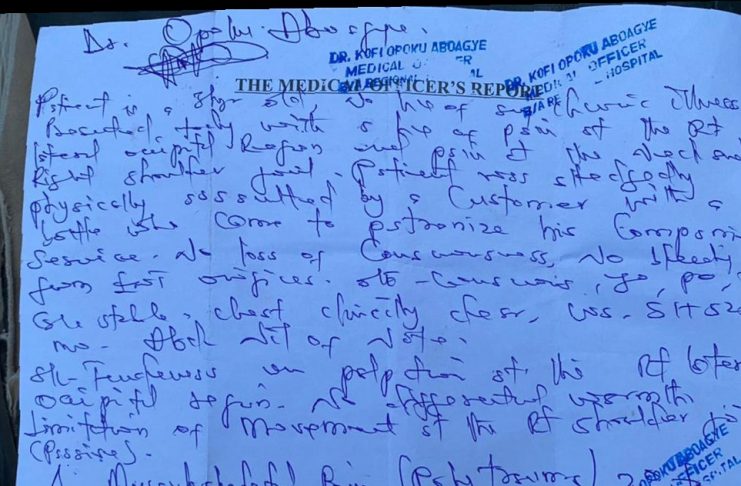 Dr. Opoku Aboagye.
DR. KOFI OPOKU ABOAGYE
MEDICAL OFFICER
REGIONAL
DR. KOFI OPOKU ABOAGYE
MEDICAL OFFICER
HOSPITAL
THE MEDICAL OFFICER'S REPORT
Patient is a 38yr old, No hx of any Chronic illness
Presented today with a hx of pain at the Rt
lateral occipital Region and pain at the Neck and
Right shoulder joint. Patient was allegedly
physically assaulted by a Customer with a
bottle who Come to patronize his Company
Service. No loss of Consciousness, No bleeding
from orifices. Conscious,
stable. chest clinically clear, CVS - S1+S2
mo. Abd - Nil of Note.
Tenderness on palpation at the Rt later
occipital region. No differential warmth
limitation of movement at the Rt shoulder jo
(Passive).
OPOKU ABOAGYE
OFFICER